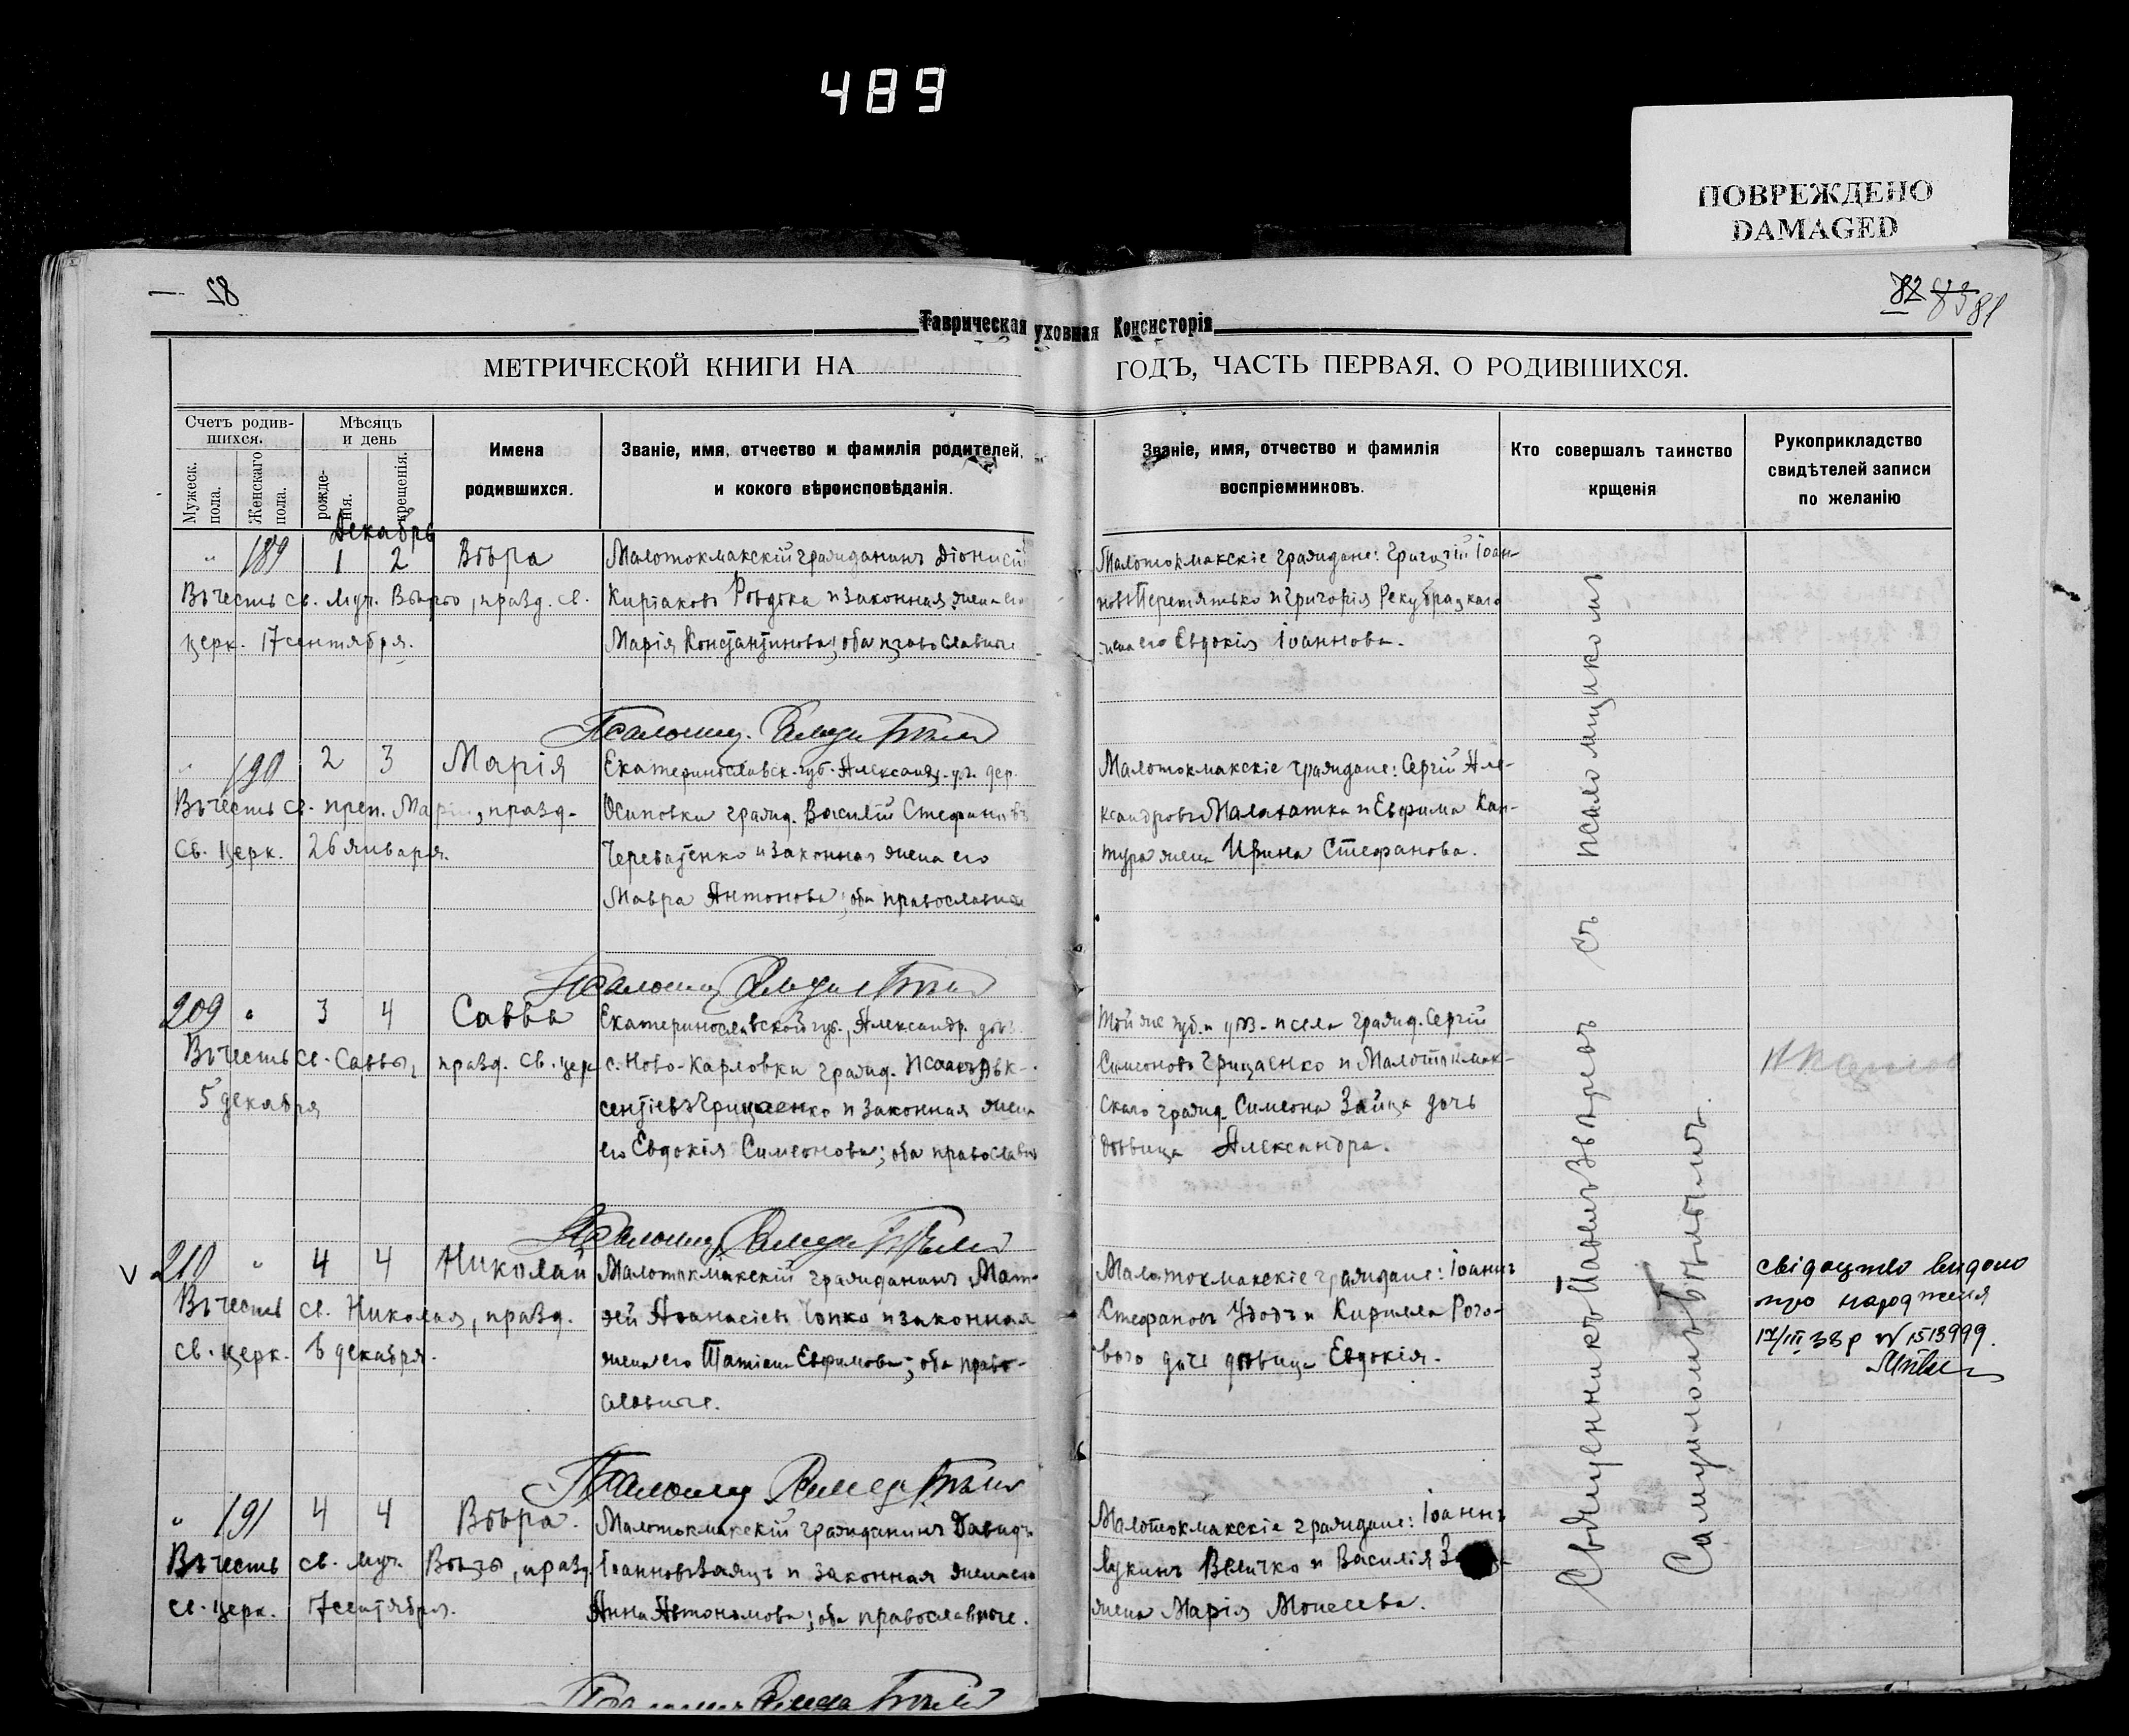 489
ПОВРЕЖДЕНО
DAMAGED
28
82 83 81
Таврическая уховная Консисторія
МЕТРИЧЕСКОЙ КНИГИ НА
ГОДЪ, ЧАСТЬ ПЕРВАЯ. О РОДИВШИХСЯ.
Счетъ родив-
шихся.
Мужеск. пола.
Женскаго пола.
Мѣсяцъ
и день
рожде-
нія.
крещенія.
Имена
родившихся.
Званіе, имя, отчество и фамилія родителей,
и кокого вѣроисповѣданія.
Званіе, имя, отчество и фамилія
воспріемниковъ.
Кто совершалъ таинство
крщенія
Рукоприкладство
свидѣтелей записи
по желанію
Декабрь
" 189 1 2 Вѣра
Въ честь св. муч. Вѣры, празд. св.
церк. 17 сентября.
Малотокмакскій гражданинъ Діонисій
Киріаковъ и законная жена его
Марія Константинова; оба православные
Малотокмакскіе граждане: Григорій Іоан-
новъ Перетятько и Григорія
жена его Евдокія Іоаннова.
Псаломщ. Самуи Бѣлый
" 190 2 3 Марія
Въ честь св. преп. Маріи, празд.
св. церк. 26 января.
Екатеринославск. губ. Александр. у. дер.
Осиповки гражд. Василій Стефановъ
Череватенко и законная жена его
Мавра Антонова; оба православные
Малотокмакскіе граждане: Сергій Але-
ксандровъ и Евфима Кан-
тура жена Ирина Стефанова.
Псаломщ Самуи Бѣлый
209 " 3 4 Савва
Въ честь св. Саввы, празд. св. церк
5 декабря
Екатеринославской губ., Александр. уѣз.
с. Ново-Карловки гражд. Исаакъ Авк-
сентіевъ Грицаенко и законная жена
его Евдокія Симеонова; оба православные
Той же губ. и уѣз. и села гражд. Сергій
Симеоновъ Грицаенко и Малотокмак-
скаго гражд. Симеона Зайца дочь
дѣвица Александра.
Псаломщ Самуи Бѣлый
V 210 " 4 4 Николай
Въ честь св. Николая, празд.
св. церк. 6 декабря.
Малотокмакскій гражданинъ Мат-
ѳей Аѳанасіевъ и законная
жена его Татіана Евфимова; оба право-
славные.
Малотокмакскіе граждане: Іоаннъ
Стефановъ Удодъ и Кирилла Рого-
вого дочь дѣвица Евдокія.
свідоцтво видано
про народження
17/III 33 р № 1513999.
Псаломщ Самуи Бѣлый
" 191 4 4 Вѣра.
Въ честь св. муч. Вѣры, празд.
св. церк. 17 сентября.
Малотокмакскій гражданинъ Давидъ
Іоанновъ Заяцъ и законная жена его
Анна Автономова; оба православные.
Малотокмакскіе граждане: Іоаннъ
Лукинъ Величко и Василія
жена Марія Моисеева.
Священникъ Павелъ Звѣревъ съ псаломщикомъ
Самуиломъ Бѣлымъ.